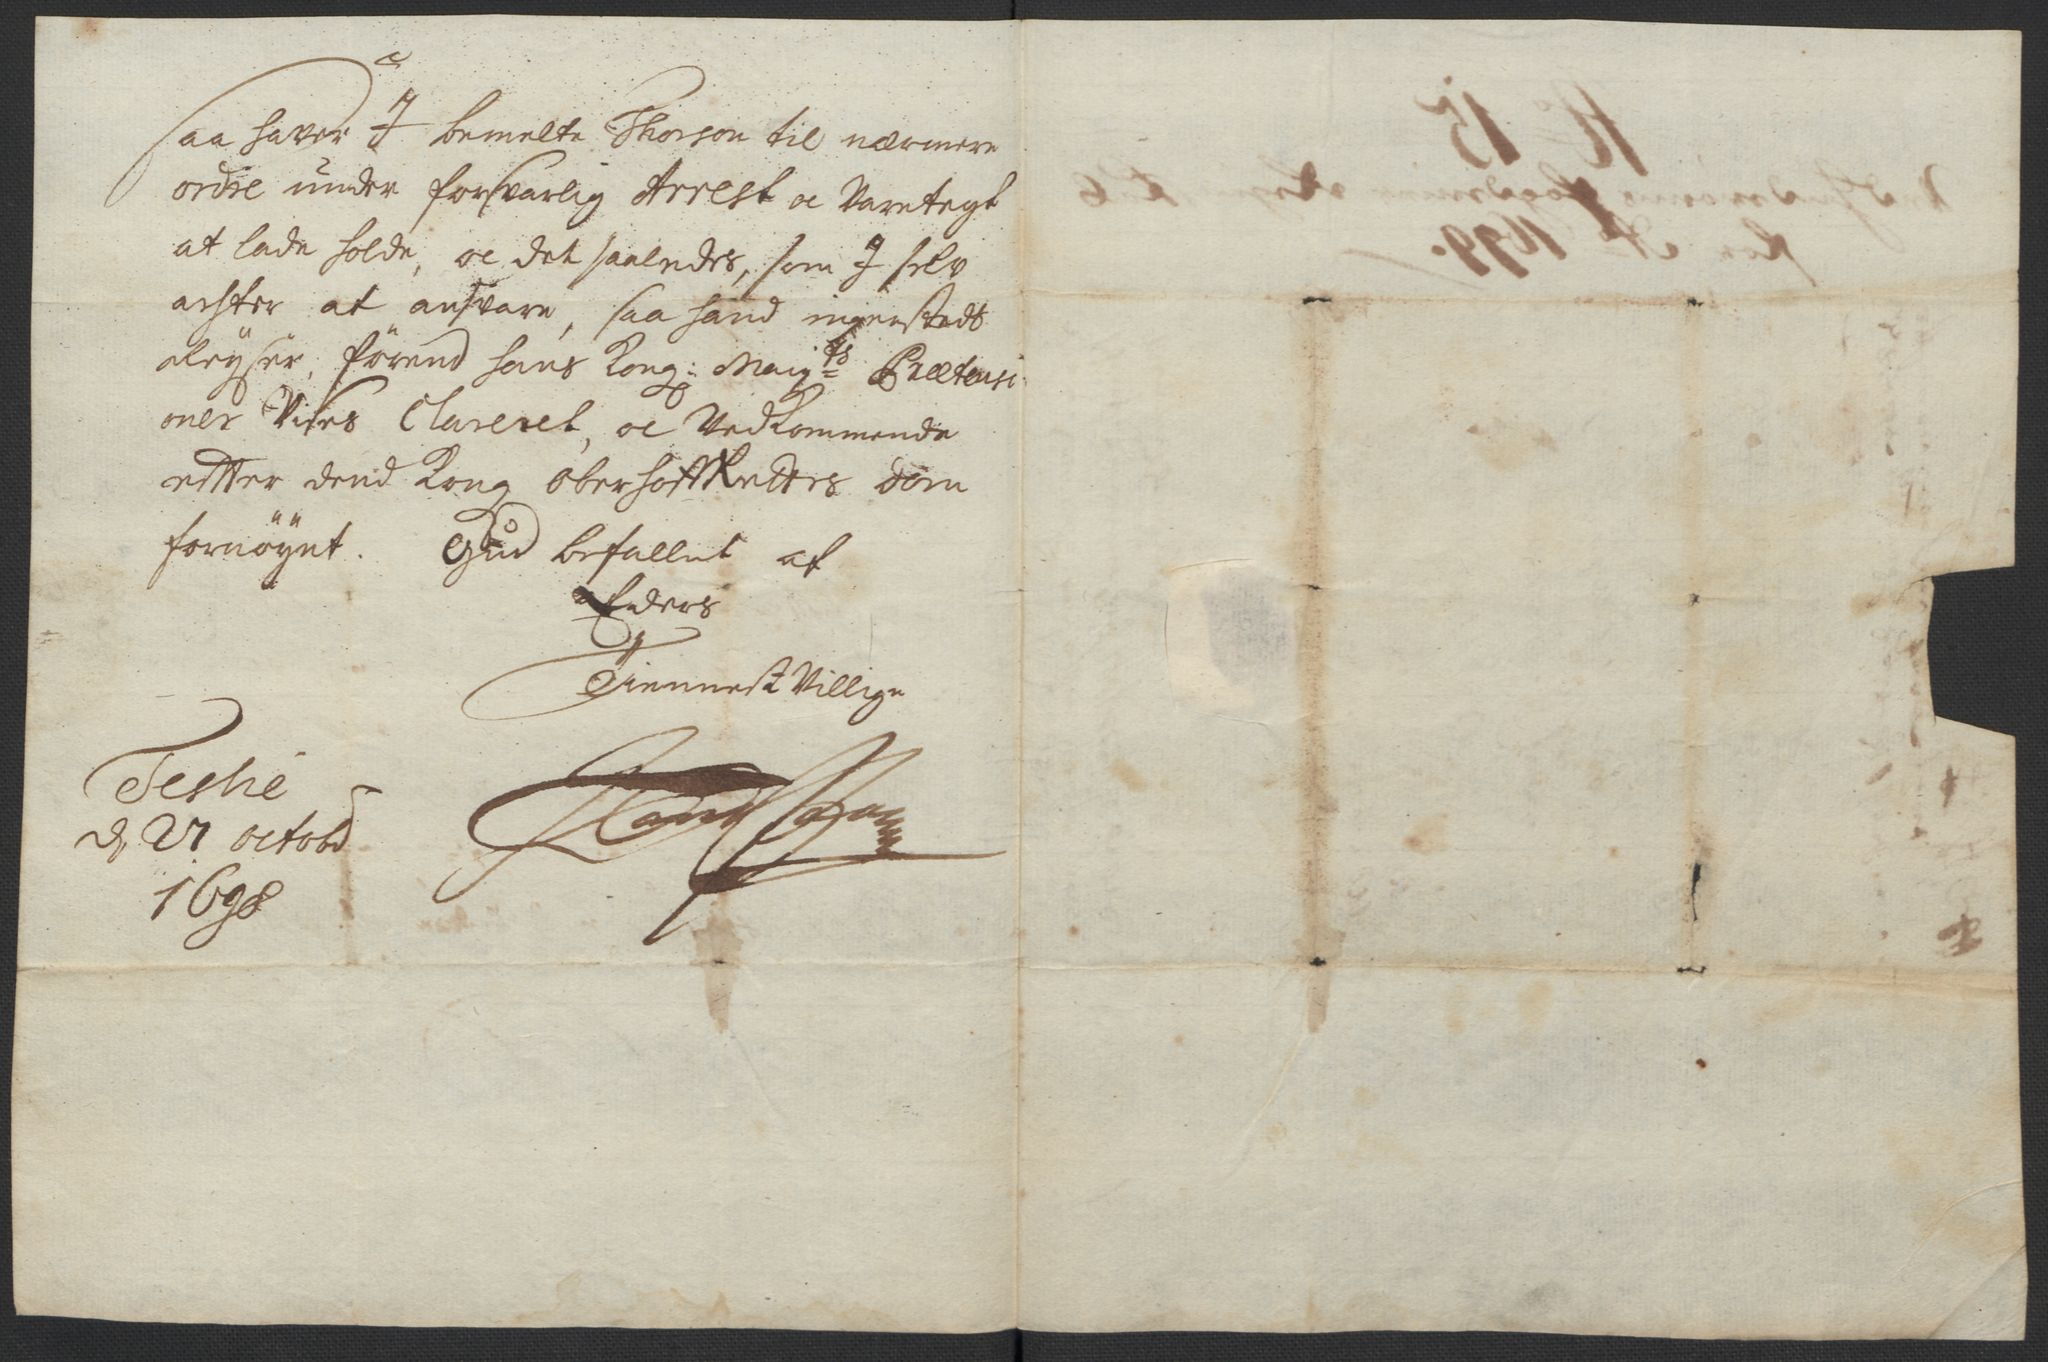 saa hafver I bemelte Thorson til nærmere
ordre under forsvarlig Arrest oc Varetegt
at lade holde, oc det saaledes, som I self
achter at ansvare, saa hand ingenstedt
aleyser, førend hans Kong: May:ts Prætensi
oner vises Clareret, oc Vedkommende
effter dend Kong Oberhoff Retters dom
fornøyet. Gud befallet af
Eders
Tiennest Villige
Teshie
d 27 octobr
1698
No 15
1699.